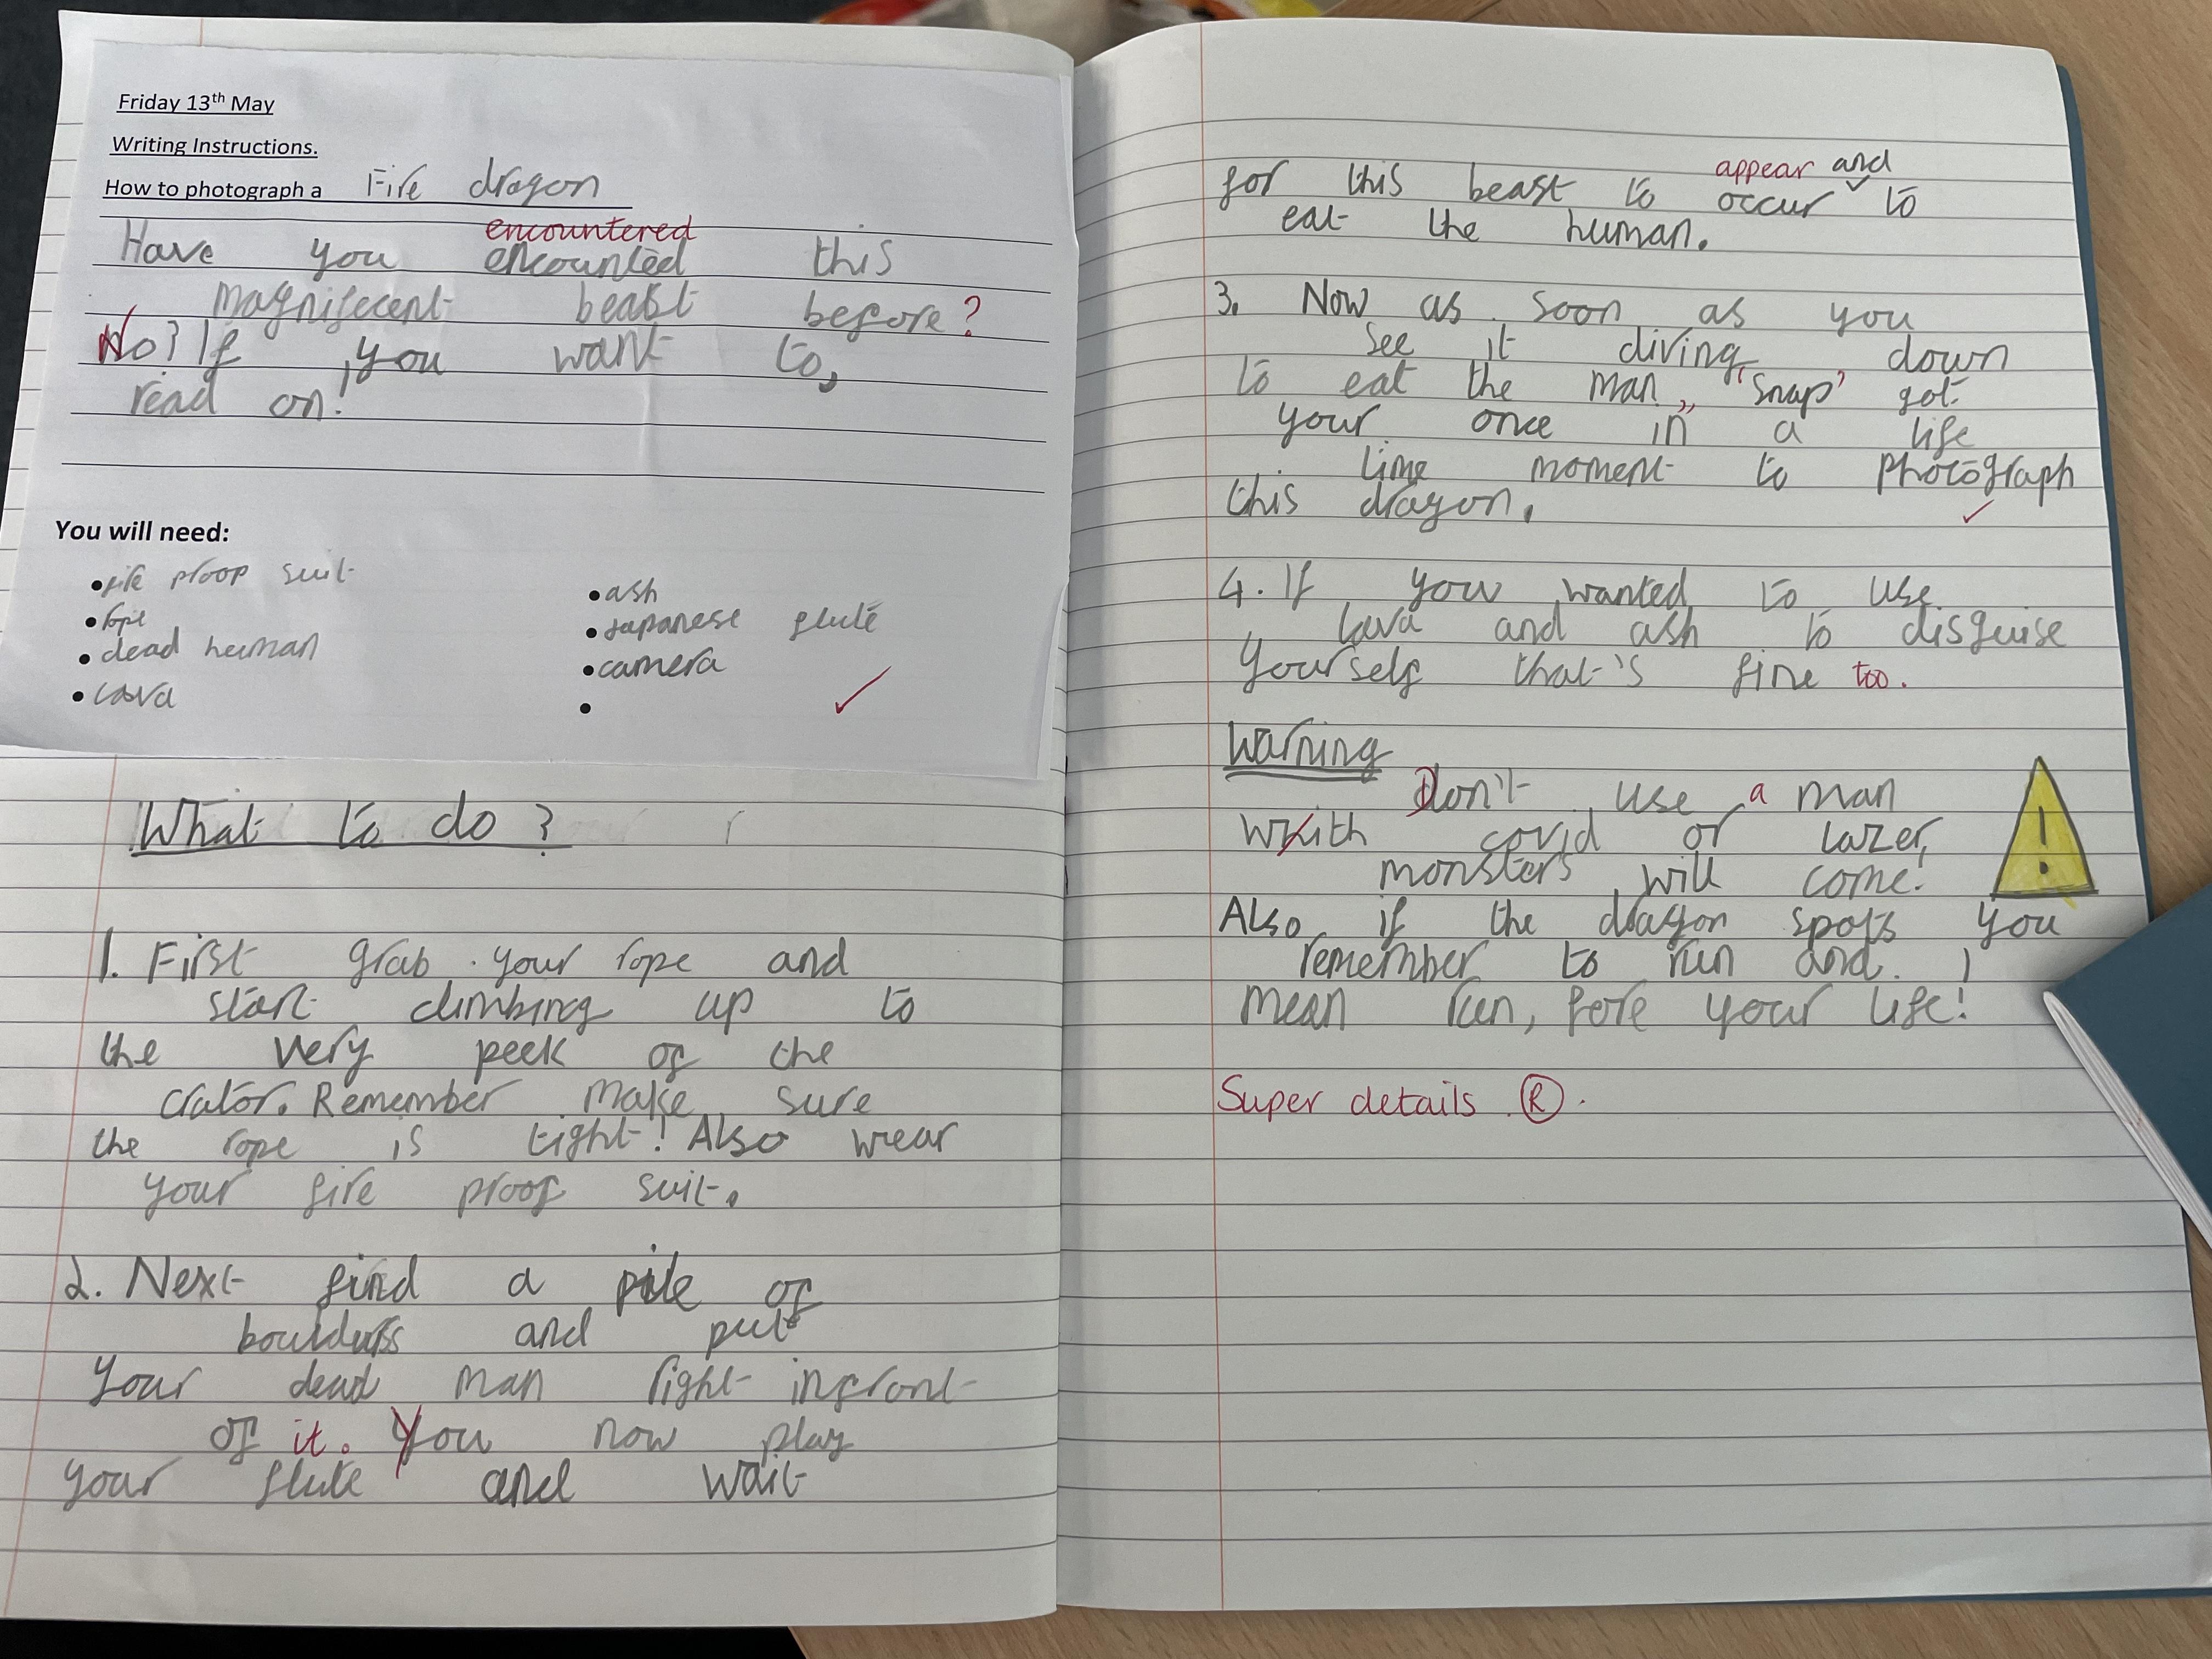 Friday 13th May
Writing Instructions.
How to photograph a Fire dragon
encountered
Have you encounted this
magnifecent beast before?
No? If you want to,
read on!
You will need:
• fire proop suit
• rope
• dead human
• lava
• ash
• Japanese flute
• camera
•
What to do?
1. First grab your rope and
start climbing up to
the very peek of the
crator. Remember make sure
the rope is tight! Also wear
your fire proof suit.
2. Next find a pile of
boulders and put
your dead man right infront
of it. You now play
your flute and wait
appear and
for this beast to occur to
eat the human.
3. Now as soon as you
see it diving down
to eat the man, 'snap' got
your once in a life
time moment to photograph
this dragon.
4. If you wanted to use
lava and ash to disguise
yourself that's fine too.
Warning
Don't use a man
with covid or lazer,
monsters will come!
Also if the dragon spots you
remember to run and I
mean run, fore your life!
!
Super details R.